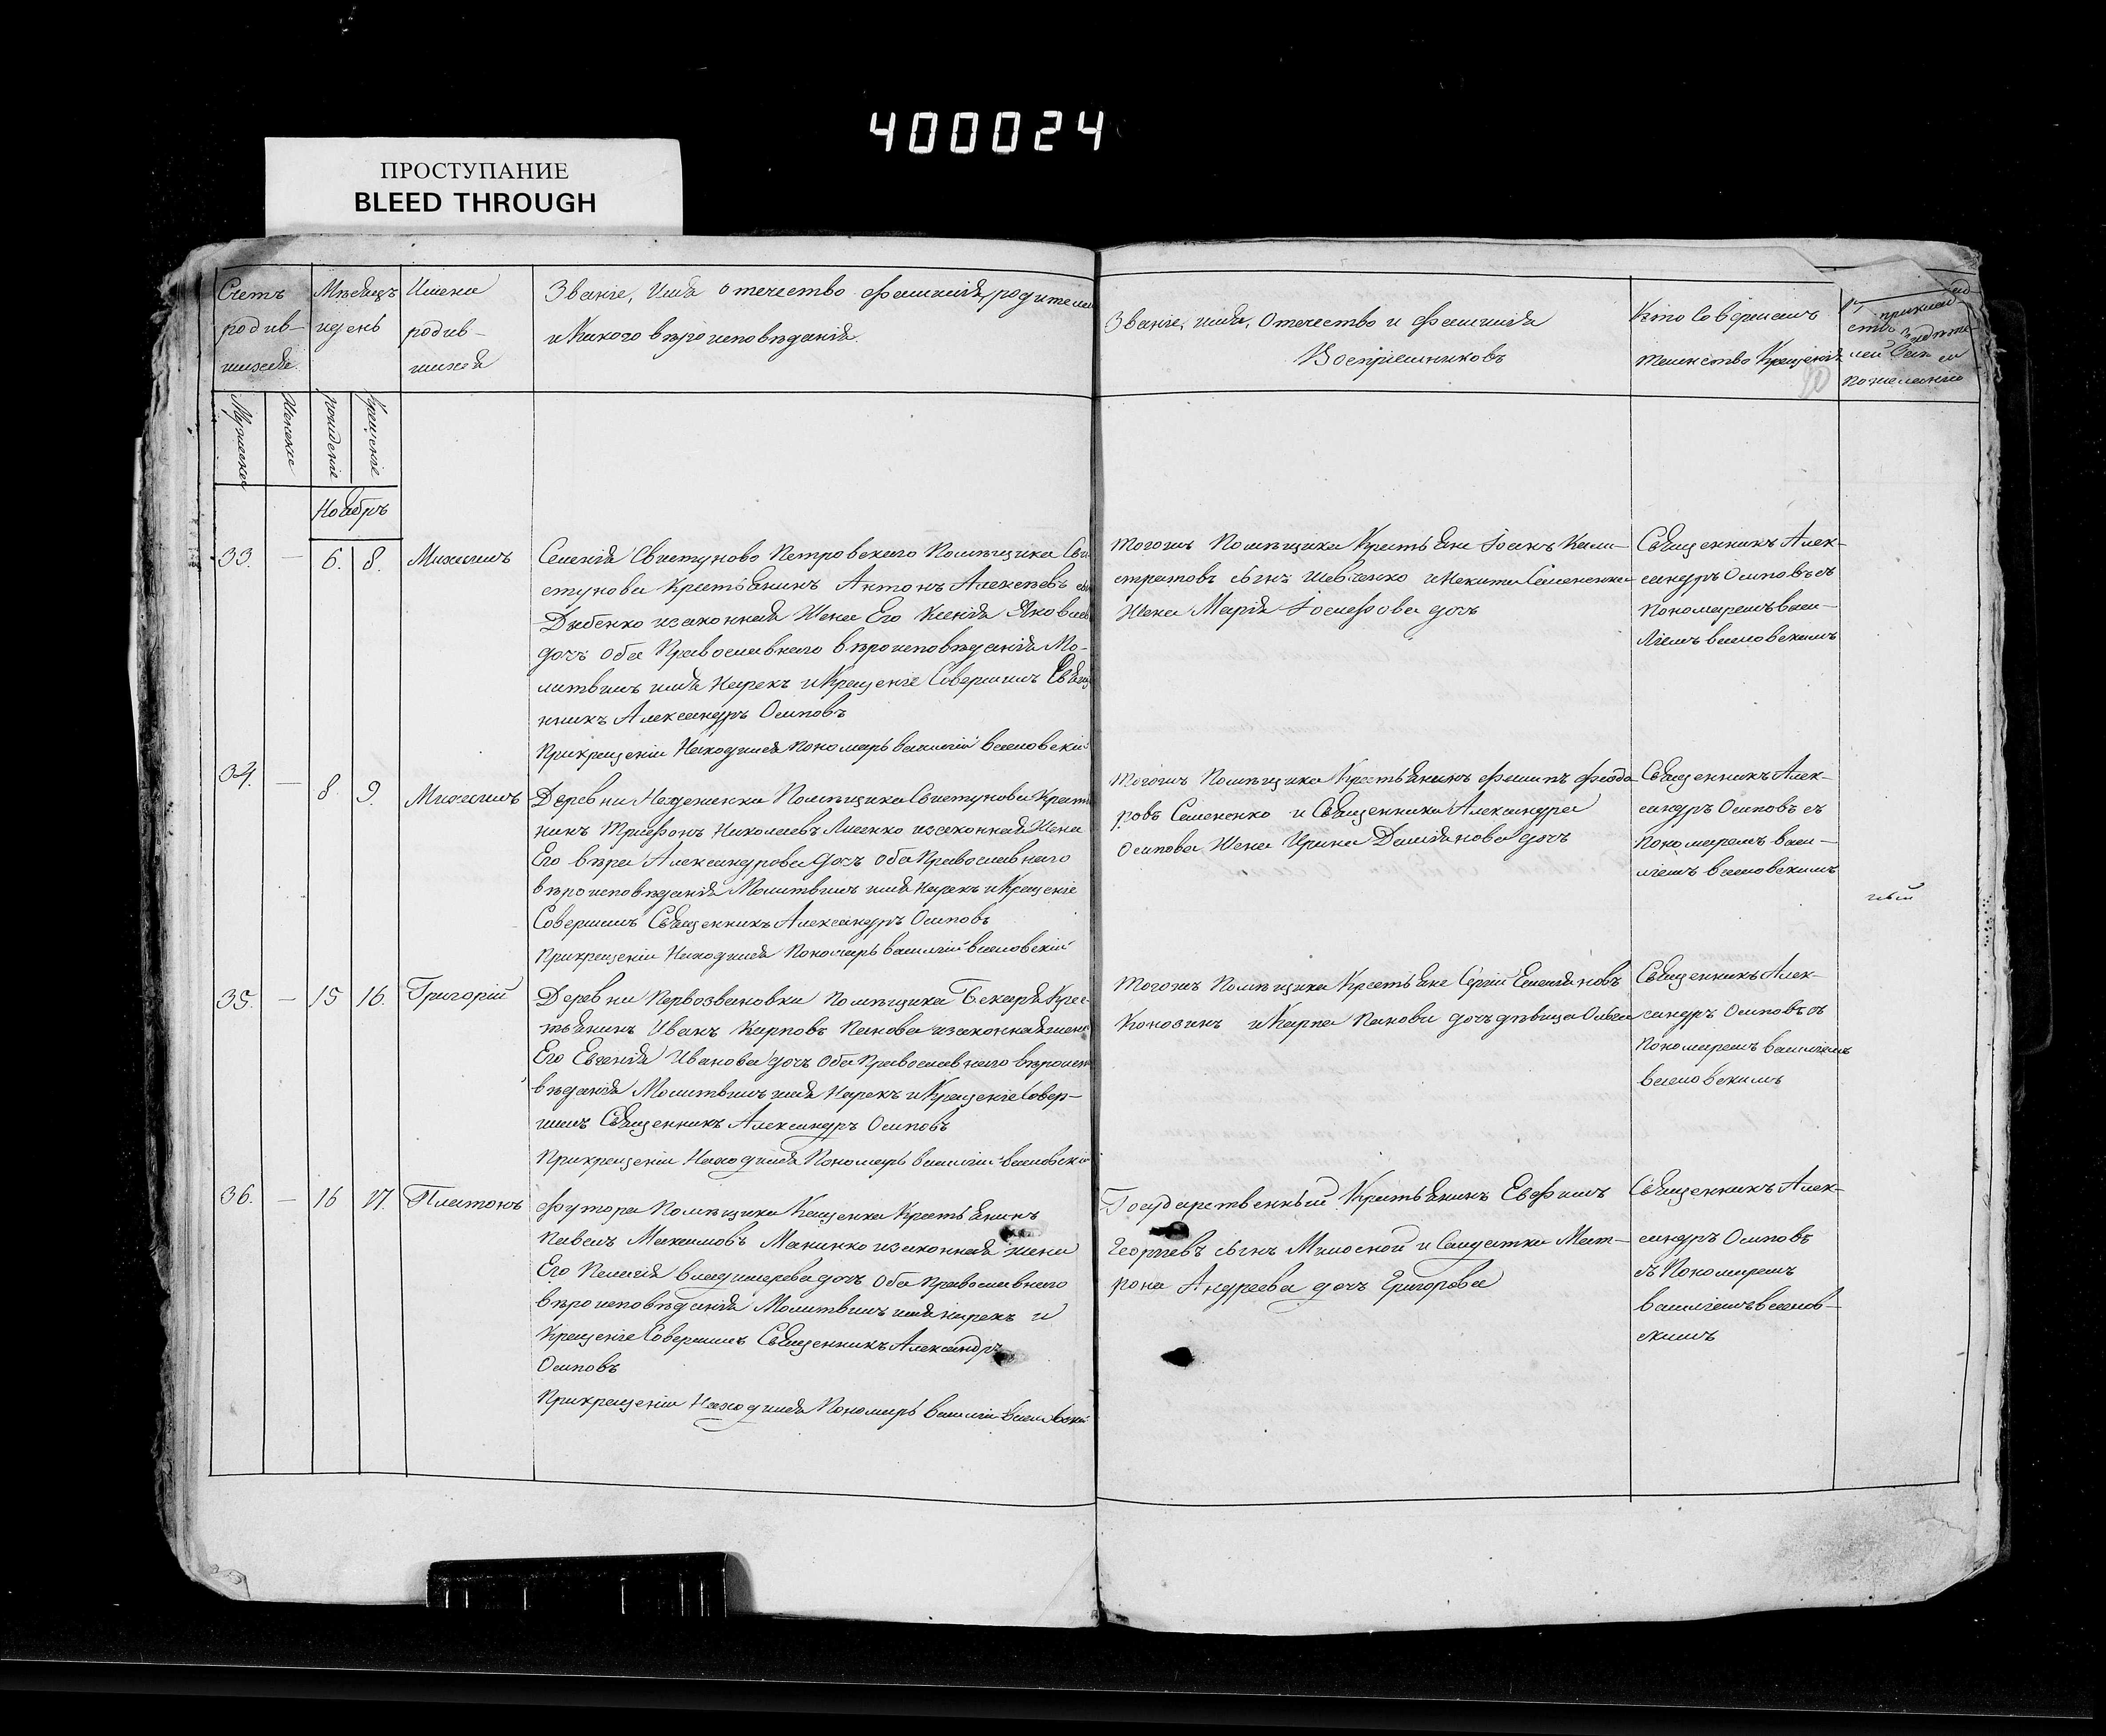 400024
ПРОСТУПАНИЕ
BLEED THROUGH
Счетъ
родив-
шихся.
Мѣсяцъ
и день
Имена
родив-
шихся
Званіе, Имя отчество фамилія, родителей
и Какого вѣроисповѣданія.
Званіе, имя, Отчество и фамилія
Воспріемниковъ
Кто Совершалъ
таинство Крещенія
Мужеска
Женска
рожденіе
Крещеніе
Ноябрь
33. — 6. 8. Михаилъ
Селенія Свистуново Петровскаго Помѣщика Сви
стунова Крестьянинъ Антонъ Алексѣевъ сынъ
Дыбенко и законная Жена Его Ксенія Яковлева
дочь оба Православнаго вѣроисповѣданія Мо-
литвилъ имя Нарекъ и Крещеніе Совершилъ Свяще
нникъ Александръ Осиповъ
При крещеніи Находился Пономарь василій
Тогожъ Помѣщика Крестьяне Іоанъ Кали-
стратовъ сынъ Шевченко и Никита Семененка
Жена Марія Іосифова дочь
Священникъ Алек-
сандръ Осиповъ съ
Пономаремъ васи-
ліемъ
34. — 8. 9. Михаилъ
Деревни Надеженки Помѣщика Свистунова Крестья
нинъ Трифонъ Николаевъ Лисенко и законная Жена
Его вѣра Александрова дочь оба Православнаго
вѣроисповѣданія Молитвилъ имя Нарекъ и Крещеніе
Совершилъ Священникъ Александръ Осиповъ
При крещеніи Находился Пономарь василій
Тогожъ Помѣщика Крестьянинъ филипъ фіодо
ровъ Семененко и Священника Александра
Осипова Жена Ирина Даміянова дочь
Священникъ Алек-
сандръ Осиповъ съ
Пономаремъ васи-
ліемъ
35. — 15 16. Григорій
Деревни Первозвановки Помѣщика Бекаря Крес-
тьянинъ Иванъ Карповъ Панова и законная жена
Его Евгенія Иванова дочь Оба Православнаго вѣроиспо
вѣданія Молитвилъ имя Нарекъ и Крещеніе Совер-
шилъ Священникъ Александръ Осиповъ
При крещеніи Находился Пономарь василій
Тогожъ Помѣщика Крестьяне Сергій Емеліяновъ
Коновинъ и Карпа Панови дочь дѣвица
Священникъ Алек-
сандръ Осиповъ съ
Пономаремъ василіемъ
36. — 16 17. Платонъ
футора Помѣщика Кащенка Крестьянинъ
Павелъ Максимовъ Макинко и законная жена
Его Пелагія владимерева дочь Оба Православнаго
вѣроисповѣданія Молитвилъ имя нарекъ и
Крещеніе Совершилъ Священникъ Александръ
Осиповъ
При крещеніи Находился Пономарь василій
Государственный Крестьянинъ Евфимъ
Георгіевъ сынъ и Салдатка Мат-
рона Андреева дочь Григорева
Священникъ Алек-
сандръ Осиповъ
съ Пономаремъ
василіемъ